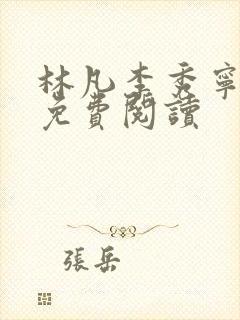 林凡李秀寧
免費閱讀
張岳